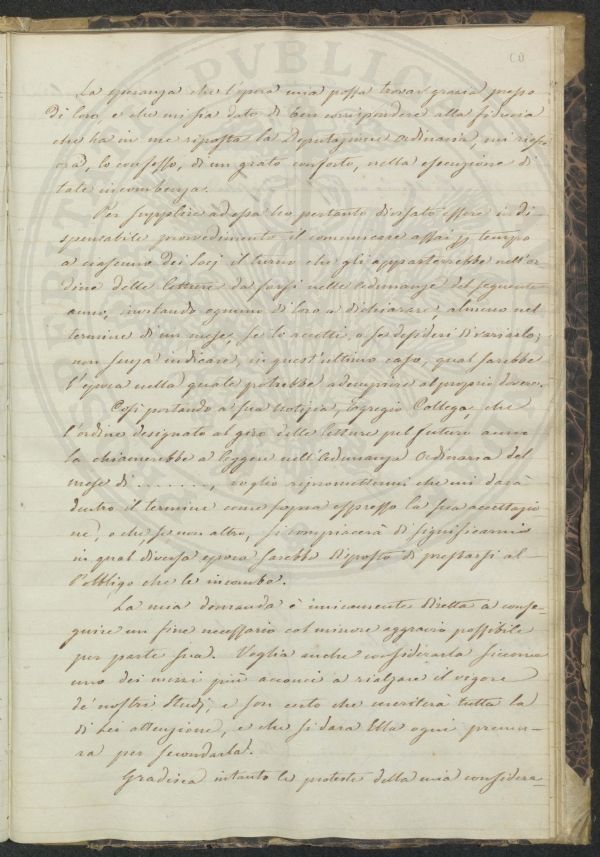 La speranza che l'opera mia possa trovar grazia presso
di loro, e che mi sia dato di ben corrispondere alla fiducia
che ha in me riposta la Deputazione ordinaria, mi
lo confesso, di un grato conforto, nella esecuzione di
tale incombenza.
Per supplire ad essa ho pertanto divisato essere indi-
spensabile provvedimento il comunicare assai tempo
a ciascuno dei Socj il turno che gli apparterrebbe nell'or-
dine delle letture da farsi nelle Adunanze del seguente
anno, invitando ognuno di loro a dichiarare, almeno nel
termine di un mese, se lo accetti, o se desideri di variarlo;
non senza indicare, in quest'ultimo caso, qual sarebbe
l'epoca nella quale potrebbe adempiere al proprio dovere.
Così portando a sua notizia, Egregio Collega, che
l'ordine designato al giro delle letture pel futuro anno
la chiamerebbe a leggere nell'Adunanza Ordinaria del
mese di ........, voglio ripromettermi che mi darà
dentro il termine come sopra espresso la sua accettazio-
ne, o che se non altro, si compiacerà di significarmi
in qual diversa epoca sarebbe disposto di prestarsi al-
l'obbligo che le incombe.
La mia domanda è unicamente diretta a conse-
guire un fine necessario col minore aggravio possibile
per parte sua. Voglia anche considerarla siccome
uno dei mezzi più acconci a rialzare il vigore
de' nostri studj, e son certo che meriterà tutta la
di Lei attenzione, e che si darà Ella ogni premu-
ra per secondarla.
Gradisca intanto le proteste della mia considera-